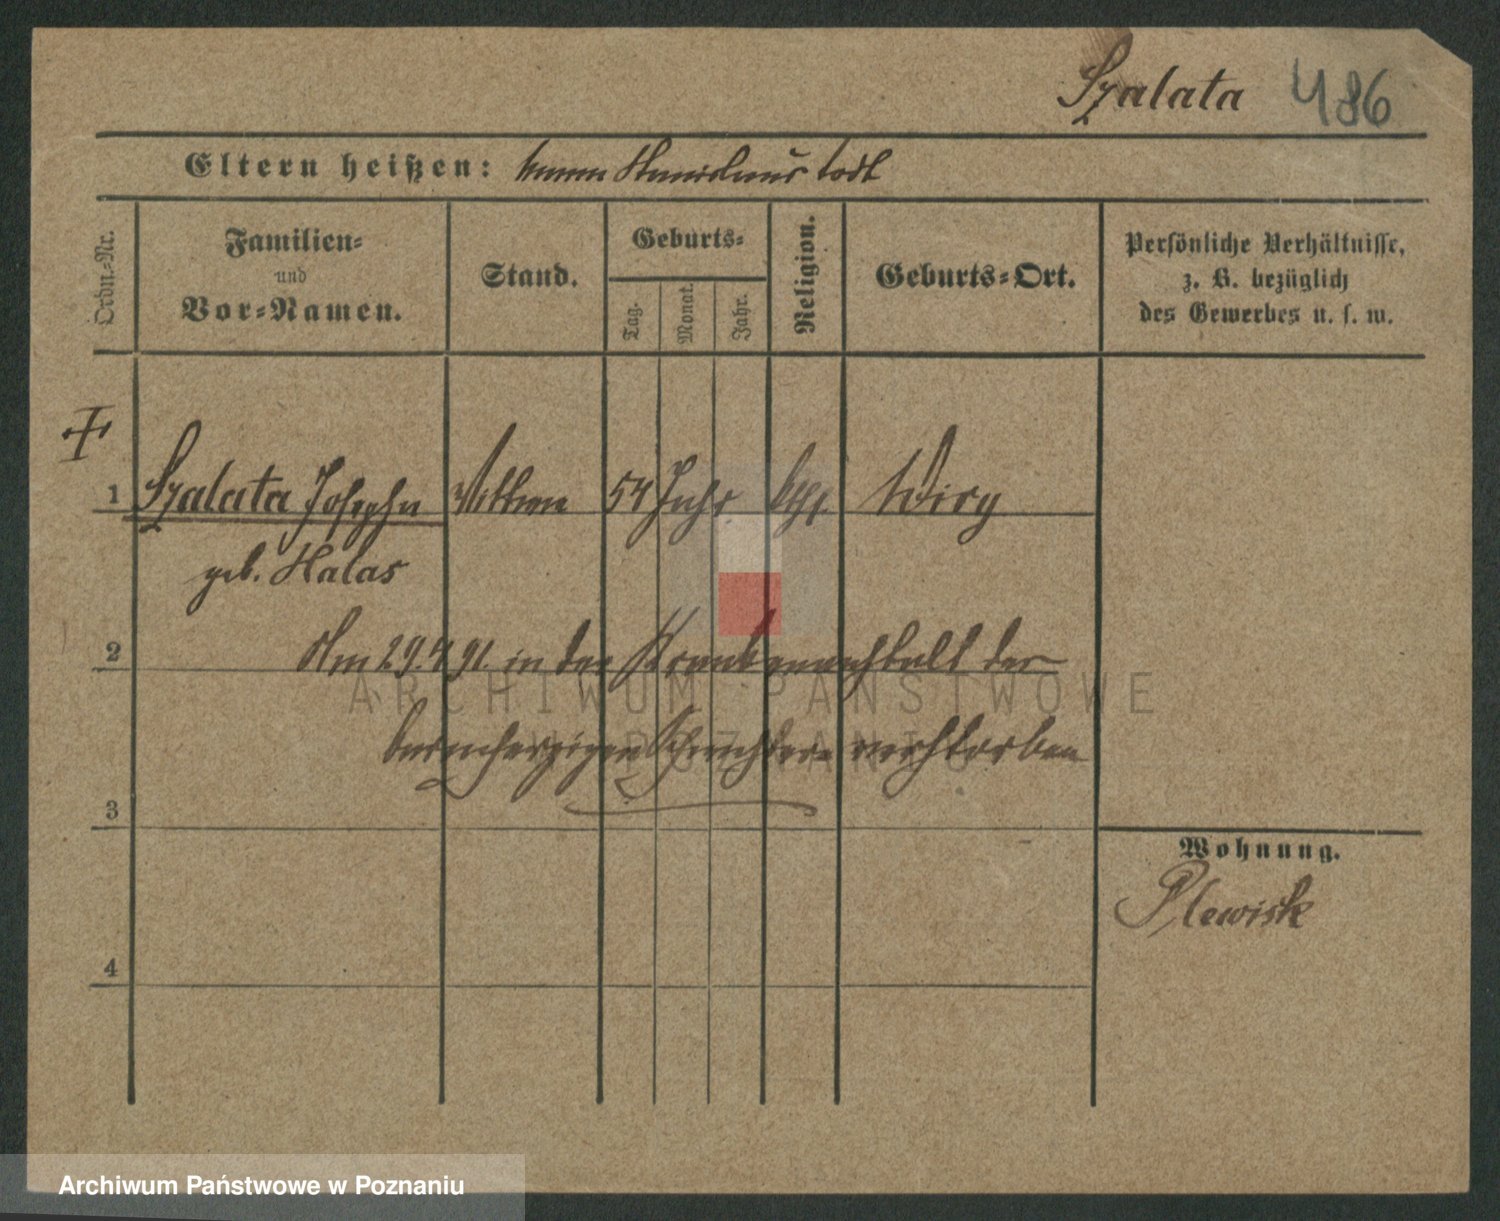 Szalata 486
Eltern heißen: Stanislaus todt
Ordn.-Nr.
Familien-
und
Vor-Namen.
Stand.
Geburts-
Tag.
Monat.
Jahr.
Religion.
Geburts-Ort.
Persönliche Verhältnisse,
z. B. bezüglich
des Gewerbes u. s. w.
1 Szalata Josepha Wittwe 54 Jahr kath. Wiry
geb. Halas
2 Am 29.4 91. in der Krankenanstalt der
barmherzigen Schwestern verstorben
3
Wohnung.
Plewisk
4
ARCHIWUM PAŃSTWOWE
W POZNANIU
Archiwum Państwowe w Poznaniu